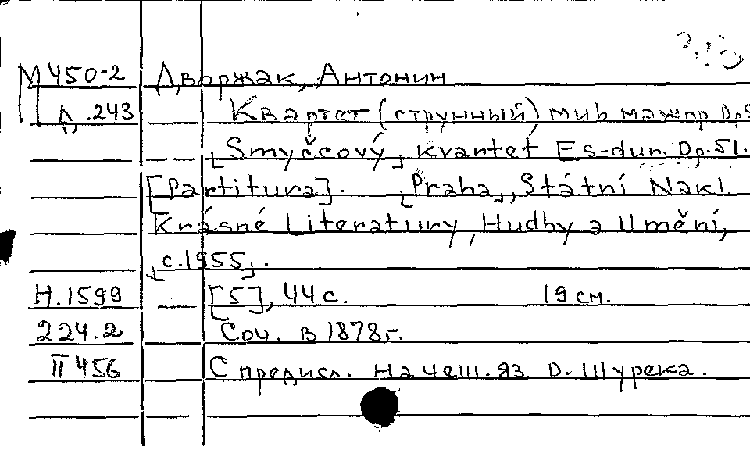 М 450-2 Дворжак, Антонин
Д .243 Квартет (струнный) ми b мажор Op.5
[Smyčcový] kvartet Es-dur. Op. 51.
[Partitura]. [Praha], Státní Nakl.
Krásné Literatury, Hudby a Umění,
[c.1955].
Н.1599 [5], 44 с. 19 см.
224.2 Соч. в 1878 г.
II 456 С предисл. на чеш. яз О. Шурека.